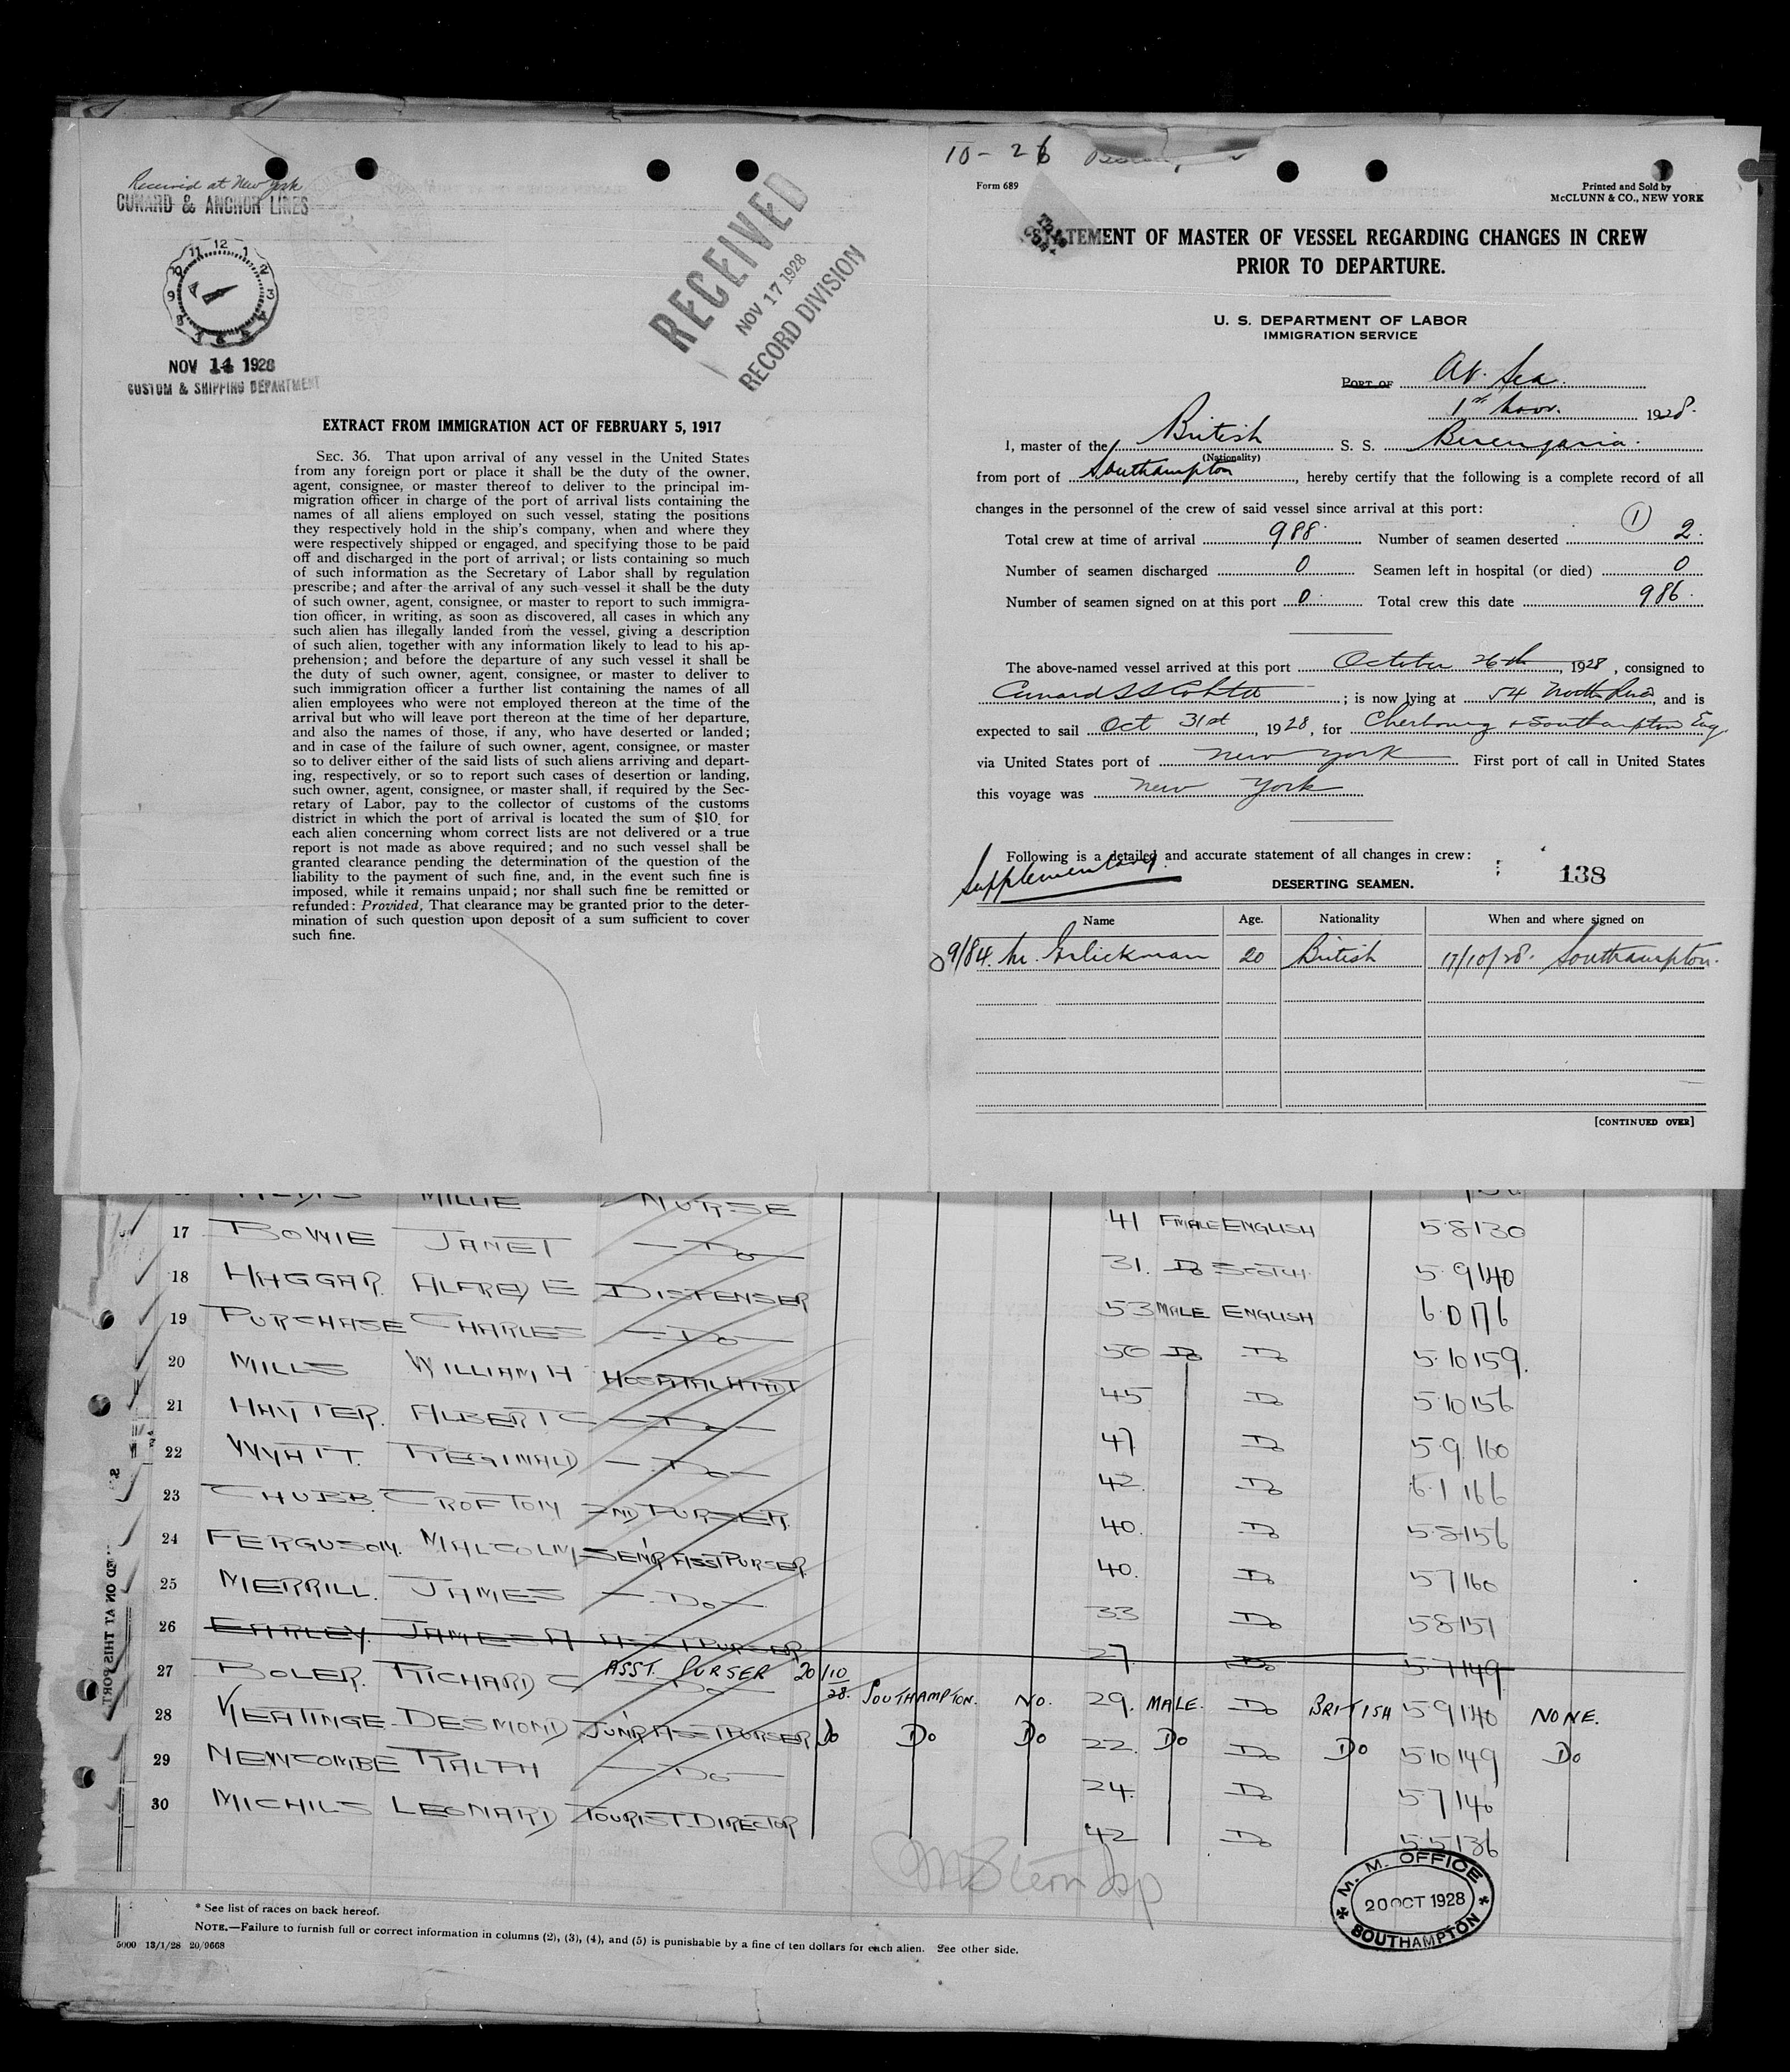 Received at New York
CUNARD & ANCHOR LINES
NOV 14 1928
CUSTOM & SHIPPING DEPARTMENT
RECEIVED
NOV 17 1928
RECORD DIVISION
EXTRACT FROM IMMIGRATION ACT OF FEBRUARY 5, 1917
SEC. 36. That upon arrival of any vessel in the United States
from any foreign port or place it shall be the duty of the owner,
agent, consignee, or master thereof to deliver to the principal im-
migration officer in charge of the port of arrival lists containing the
names of all aliens employed on such vessel, stating the positions
they respectively hold in the ship's company, when and where they
were respectively shipped or engaged, and specifying those to be paid
off and discharged in the port of arrival; or lists containing so much
of such information as the Secretary of Labor shall by regulation
prescribe; and after the arrival of any such vessel it shall be the duty
of such owner, agent, consignee, or master to report to such immigra-
tion officer, in writing, as soon as discovered, all cases in which any
such alien has illegally landed from the vessel, giving a description
of such alien, together with any information likely to lead to his ap-
prehension; and before the departure of any such vessel it shall be
the duty of such owner, agent, consignee, or master to deliver to
such immigration officer a further list containing the names of all
alien employees who were not employed thereon at the time of the
arrival but who will leave port thereon at the time of her departure,
and also the names of those, if any, who have deserted or landed;
and in case of the failure of such owner, agent, consignee, or master
so to deliver either of the said lists of such aliens arriving and depart-
ing, respectively, or so to report such cases of desertion or landing,
such owner, agent, consignee, or master shall, if required by the Sec-
retary of Labor, pay to the collector of customs of the customs
district in which the port of arrival is located the sum of $10 for
each alien concerning whom correct lists are not delivered or a true
report is not made as above required; and no such vessel shall be
granted clearance pending the determination of the question of the
liability to the payment of such fine, and, in the event such fine is
imposed, while it remains unpaid; nor shall such fine be remitted or
refunded: Provided, That clearance may be granted prior to the deter-
mination of such question upon deposit of a sum sufficient to cover
such fine.
10-26
Form 689
Printed and Sold by
McCLUNN & CO., NEW YORK
STATEMENT OF MASTER OF VESSEL REGARDING CHANGES IN CREW
PRIOR TO DEPARTURE.
U. S. DEPARTMENT OF LABOR
IMMIGRATION SERVICE
PORT OF At Sea
1st Nov. 1928.
I, master of the British S. S. Berengaria.
(Nationality)
from port of Southampton, hereby certify that the following is a complete record of all
changes in the personnel of the crew of said vessel since arrival at this port:
Total crew at time of arrival 988. Number of seamen deserted (1) 2.
Number of seamen discharged 0 Seamen left in hospital (or died) 0
Number of seamen signed on at this port 0. Total crew this date 986.
The above-named vessel arrived at this port October 26th, 1928, consigned to
Cunard SS Co Ltd; is now lying at 54 North River, and is
expected to sail Oct 31st, 1928, for Cherbourg & Southampton Eng
via United States port of New York First port of call in United States
this voyage was New York
Following is a detailed and accurate statement of all changes in crew:
Supplementary
138
DESERTING SEAMEN.
Name Age. Nationality When and where signed on
9/84. M. Glickman 20 British 17/10/28. Southampton.
[CONTINUED OVER]
MILLIE NURSE 41 FMALE ENGLISH 5.8 130
17 BOWIE JANET -Do- 31. Do SCOTCH. 5.9 140
18 HAGGAR. ALFRED E DISPENSER 53 MALE ENGLISH 6.0 176
19 PURCHASE CHARLES -Do- 50 Do Do 5.10 159.
20 MILLS WILLIAM H HOSPITAL ATTDT 45 Do 5.10 156
21 HAYTER. ALBERT C -Do- 47 Do 5.9 160
22 WYATT. REGINALD -Do- 42. Do 6.1 166
23 CHUBB. CROFTON 2ND PURSER. 40. Do 5.8 156
24 FERGUSON. MALCOLM SEN'R ASST PURSER 40. Do 5.7 160
25 MERRILL. JAMES -Do- 33 Do 5.8 151
26 EARLEY. JAMES A ASST PURSER 27. Do 5.7 149
27 BOLER. RICHARD C ASST. PURSER 20/10/28. SOUTHAMPTON. NO. 29. MALE. Do BRITISH 5.9 140 NONE.
28 KEATINGE DESMOND JUN'R ASST PURSER Do Do Do 22. Do Do Do 5.10 149 Do
29 NEWCOMBE RALPH -Do- 24. Do 5.7 146
30 MICHILS LEONARD TOURIST DIRECTOR 42 Do 5.5 136
M. M. OFFICE
20 OCT 1928
SOUTHAMPTON
* See list of races on back hereof.
NOTE.—Failure to furnish full or correct information in columns (2), (3), (4), and (5) is punishable by a fine of ten dollars for each alien. See other side.
5000 13/1/28 20/9668